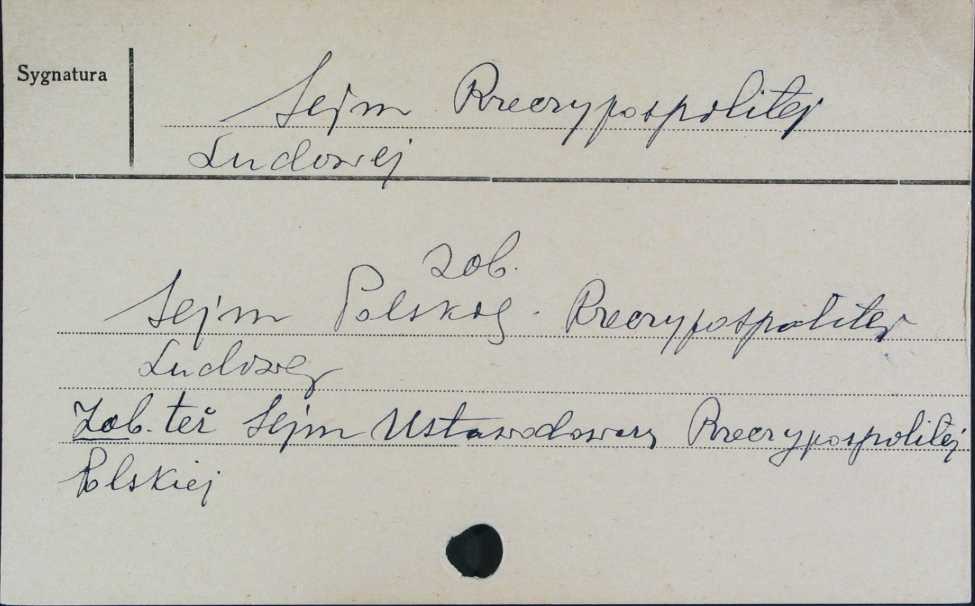 Sygnatura
Sejm Rzeczypospolitej
Ludowej
zob.
Sejm Polskiej Rzeczypospolitej
Ludowej
Zob. też Sejm Ustawodawczy Rzeczypospolitej
Polskiej